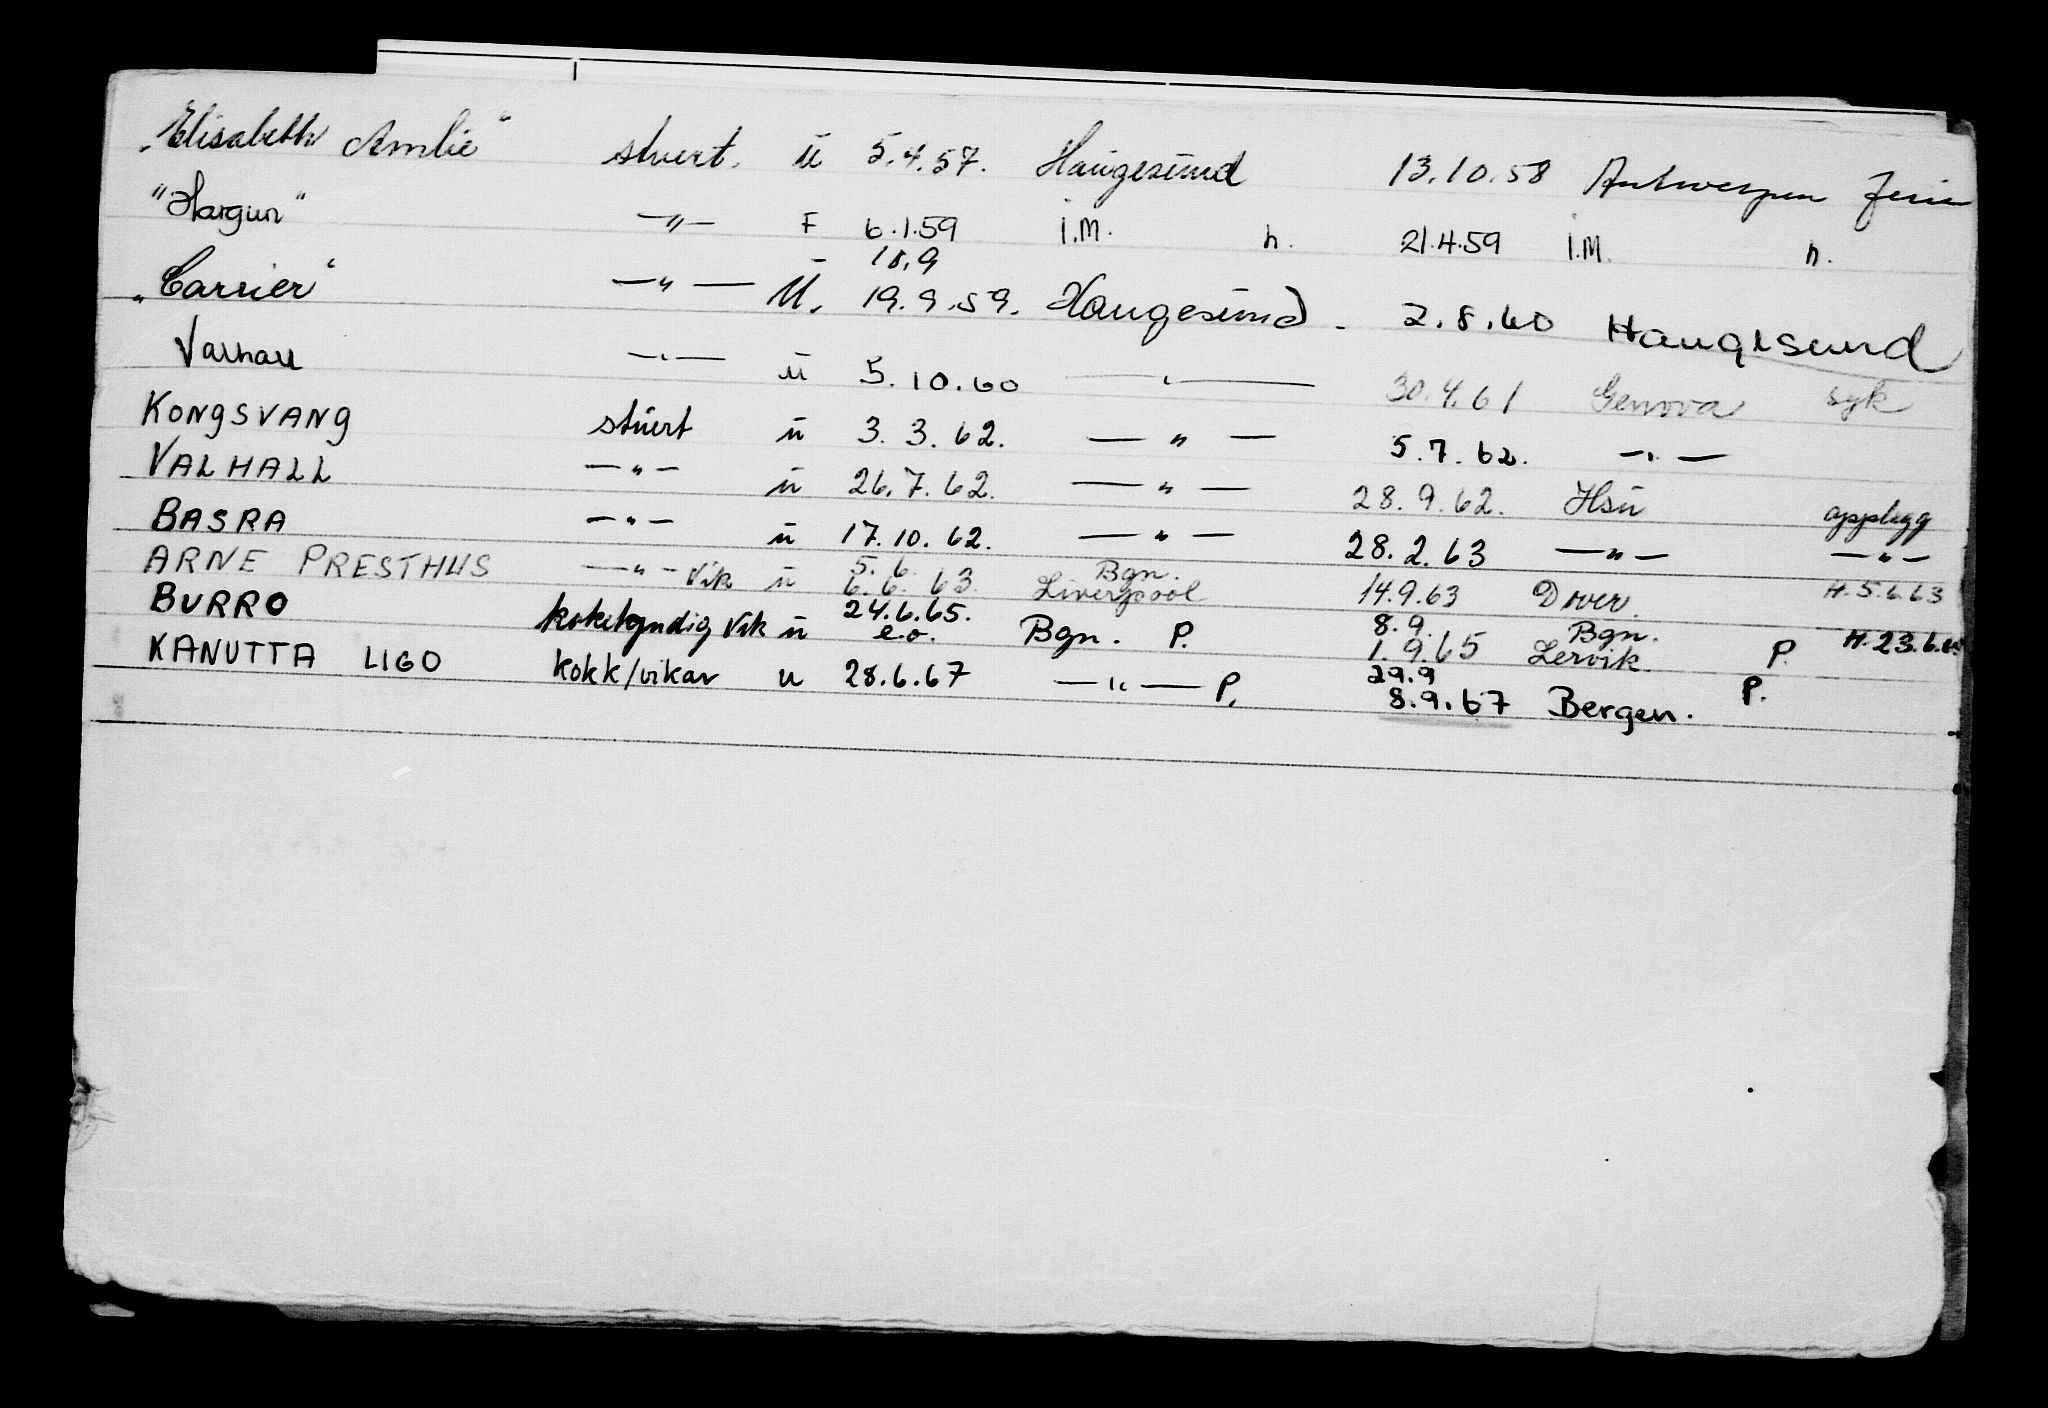 „Elisabeth Amlie" stuert. u 5.4.57. Haugesund 13.10.58 Antwerpen ferie
"Hargun" —"— F 6.1.59 i.M. h. 21.4.59 i.M. h.
18.9
„Carrier" —"— U. 19.9.59. Haugesund. 2.8.60 Haugesund
Valhall —"— u 5.10.60 —"— 30.4.61 Genova syk
KONGSVANG stuert u 3.3.62. —"— 5.7.62. —"—
VALHALL —"— u 26.7.62. —"— 28.9.62. Hsu opplegg
BASRA —"— u 17.10.62. —"— 28.2.63 —"— —"—
5.6. Bgn.
ARNE PRESTHUS —"— vik u 6.6.63 Liverpool 14.9.63 Dover H.5.6.63
24.6.65. 8.9. Bgn.
BURRO kokekyndig vik u e.o. Bgn. P. 1.9.65 Lervik P. H.23.6.65
29.9
KANUTTA LIGO kokk/vikar u 28.6.67 —"— P. 8.9.67 Bergen. P.